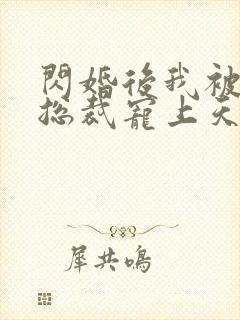 閃婚後我被
總裁寵上天
犀共鳴